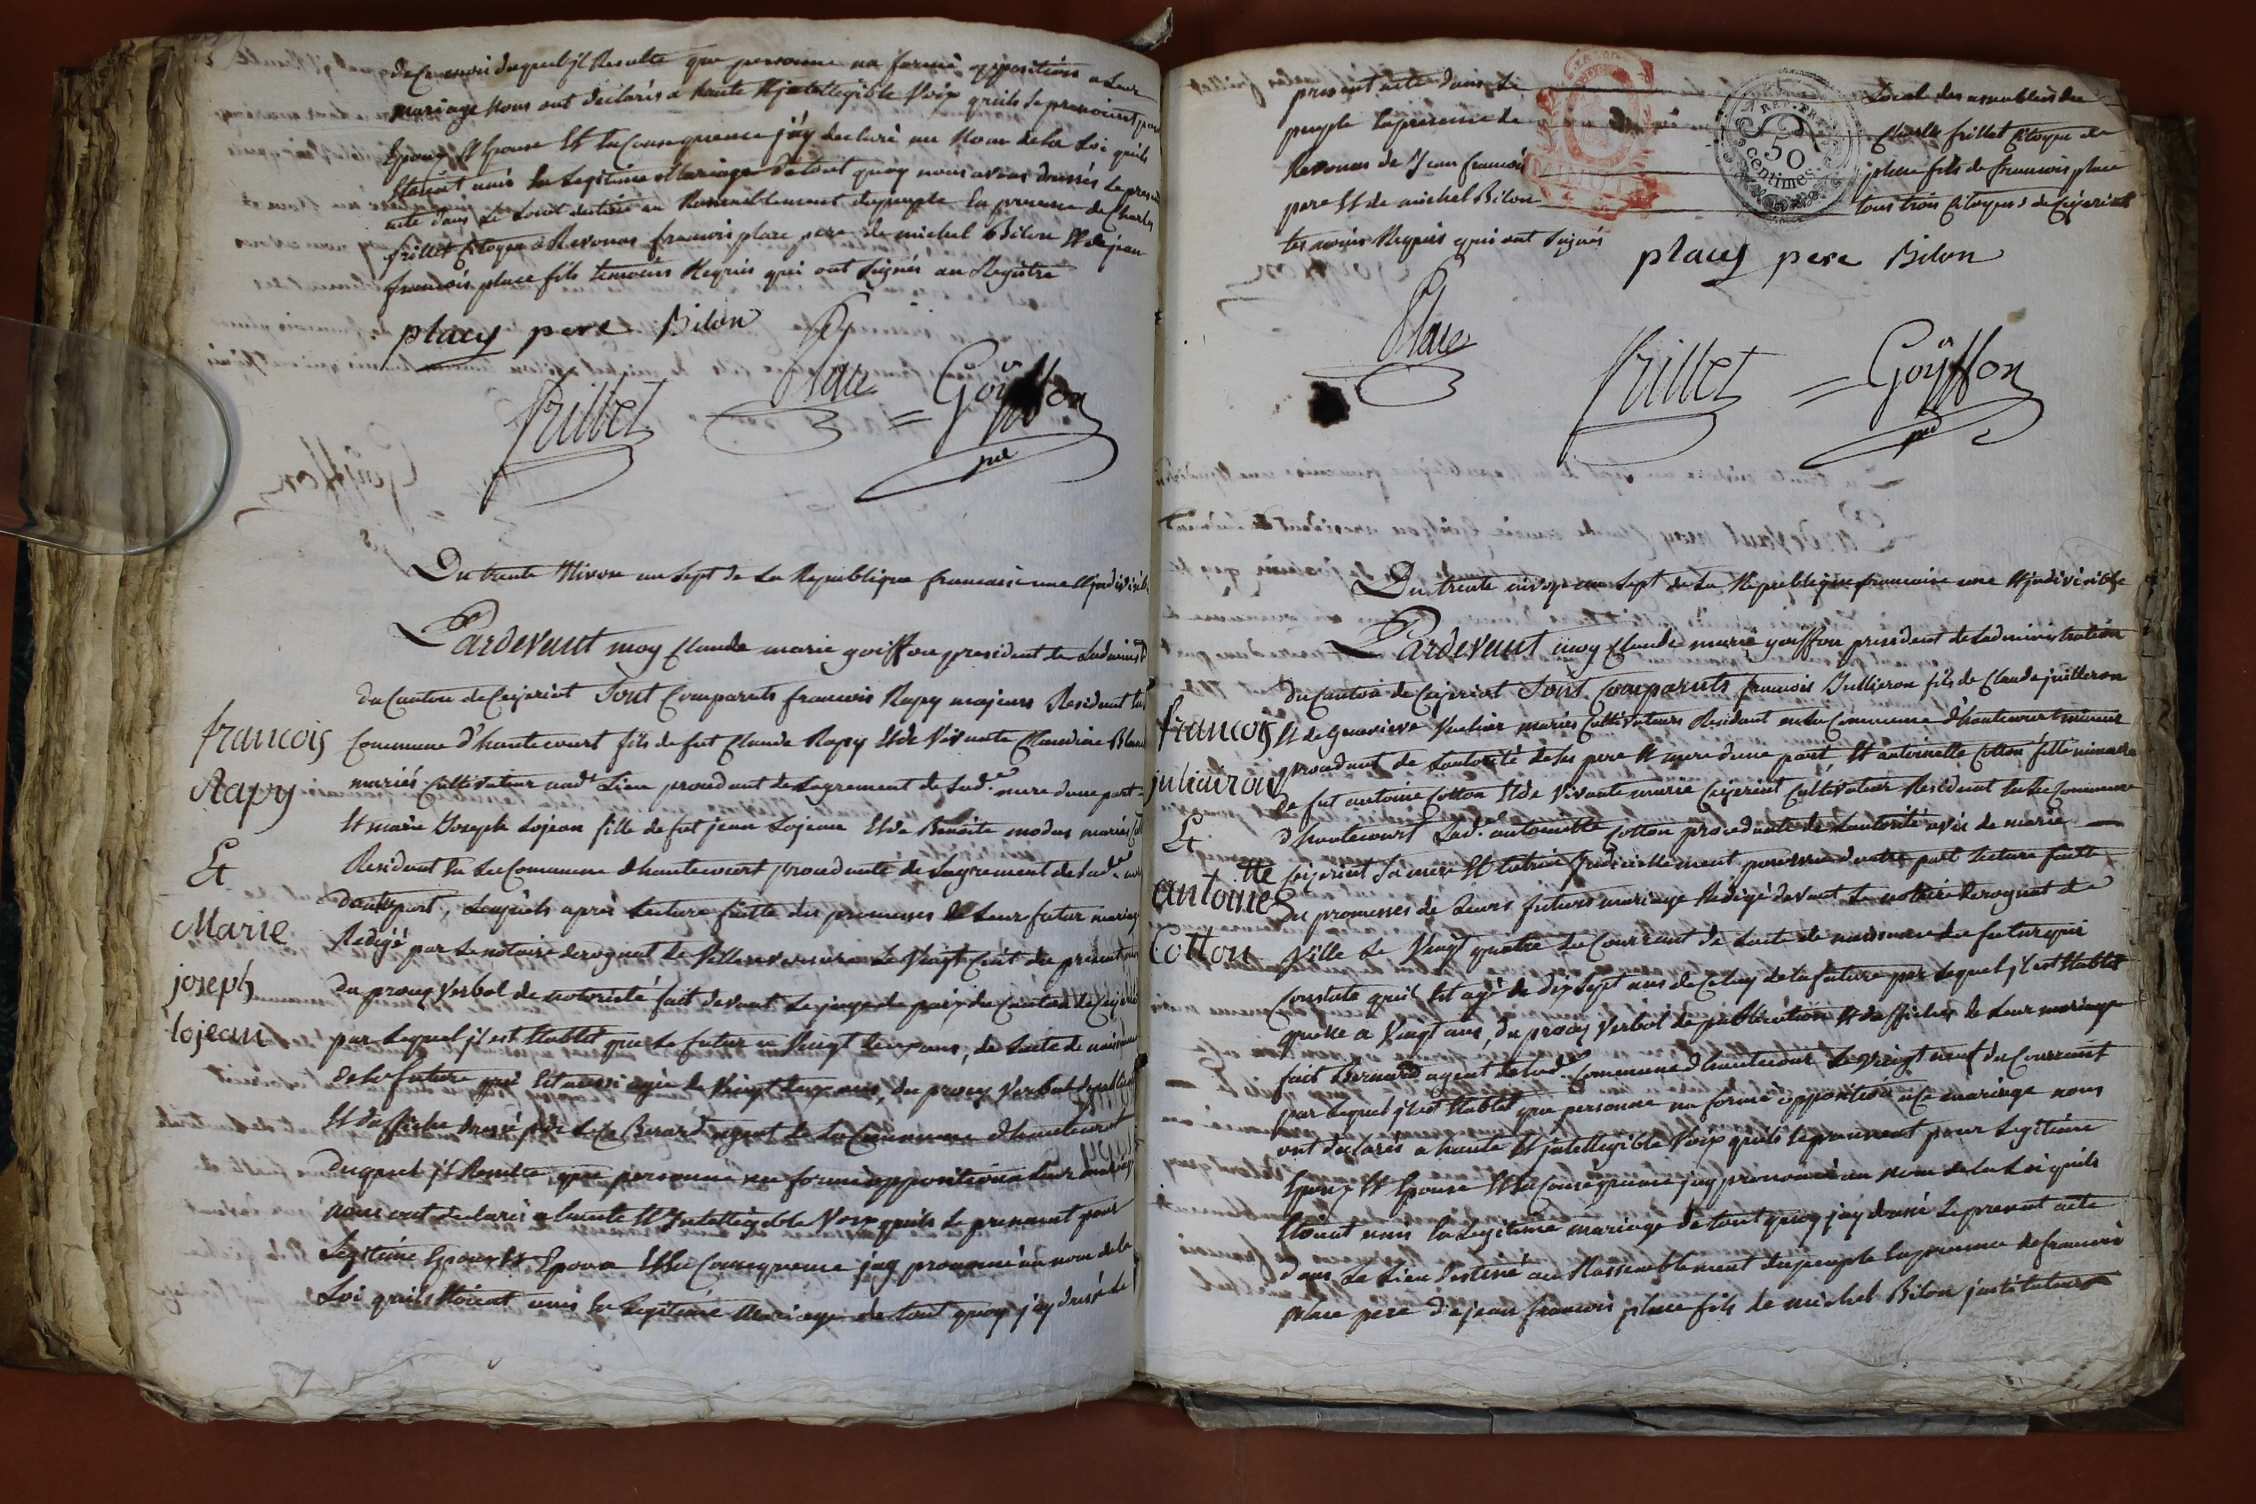 de ce mois duquel jl Resulte que personne na formé opposition a Leur
mariage nous ont déclarés a haute & jntellegible Voix qu'ils se prenoient pour
Epoux & Epouse Et En Consequence j'ay declaré au Nom de la Loi quils
Etoient unis En Legitime Mariage De tout quoy nous avons dressés le present
acte dans Le Local destiné au Rassemblement du peuple En presence de Charles
frillet Citoyen a Revonas francois place pere de michel Bilon & de jean
francois place fils temoins Requis qui ont signés au Registre
placy pere Bilon
Place
frillet = Goiffon
pnt
Du trente Nivose an Sept de La Republique francaise une & jndivisible
Pardevant moy Claude marie goiffon president de Ladminist
Du Canton de Ceyzeriat Sont Comparuts francois Rapy majeur Resident En
Commune d'hautecourt fils de fut Claude Rapy & de Vivante Claudine Blanc
mariés Cultivateur aud.t Lieu procedant de Lagrement de Lad.e mere dune part
& marie Joseph Lojean fille de fut jean Lojean & de Benoite modas mariés
Resident En La Commune dhautecourt procedante de Lagrement de Lad.e mere
dautre part, Lesquels après Lecture faitte des promesses de Leur futur mariage
Redigé par Le notaire derognat de Villereversure Le Vingt Cinq du present mois
Du procez Verbal de notorieté fait devant Le juge de paix du Canton de Ceyzeriat
par Lequel jl est Etablit que Le futur a Vingt deux ans, de Lacte de naissance
de la future qui Est aussi agée de Vingt deux ans, du procez Verbal de publication
& daffiches dressé par Le C.n Bernard agent de La Commune dhautecourt
Duquel jl Resulte que personne na formé opposition a Leur mariage
nous ont declarés a haute & Jntellegible Voix quils se prenoient pour
Legitime Epoux & Epouse Et En Consequence jay prononcé au nom de la
Loi quils Etoient unis En Legitime Mariage de tout quoy j'ay dressé le
francois
Rapy
Et
Marie
joseph
lojean
present acte dans Le Local des assemblées du
peuple En presence de Charles frillet Citoyen de
Revonas de Jean francois place fils de francois place
pere & de michel Bilon tous trois Citoyens de Ceyzeriat
temoins Requis qui ont signés
placy pere Bilon
Place
frillet = Goÿffon
pnt
REP. FRA.
50
centimes
Du trente nivose an Sept de La Republique francaise une & jndivisible
Pardevant moy Claude marie goiffon president de Ladministration
Du Canton de Ceyzeriat Sont Comparuts francois Jullieron fils de Claude juilleron
& de genevieve Vuelier mariés Cultivateurs Resident En La Commune d'hautecourt mineur
procedant de Lautorité de Ses pere & mere dune part, Et antoinette Cotton fille mineure
de fut antoine Cotton & de Vivante marie Ceyzeriat Cultivateur Resident En La Commune
d'hautecourt Lad.e antoinette Cotton procedante de Lautorité avis de marie
Ceyzeriat Sa mere & tutrice judiciellement pourvue dautre part Lecture faitte
Des promesses de Leurs futurs mariage Redigé devant Le notaire derognat de
Ville Le Vingt quatre du Courrant de Lacte de naissance du futur qui
Constate quil Est agé de dix Sept ans de Celuy de la future par Lequel jl est Etablit
quelle a Vingt ans, du procez Verbal de publication & daffiches de Leur mariage
fait Bernard agent de Lad.e Commune dhautecour Le Vingt neuf du Courrant
par Lequel jl est Etablit que personne na formé dopposition a Ce mariage nous
ont declarés a haute & jntellegible Voix quils Se prennent pour Legitime
Epoux & Epouse & En Consequence jay prononcé au nom de La Loi quils
Etoient unis En Legitime mariage De tout quoy jay dressé Le present acte
dans Le Lieu Destiné au Rassemblement du peuple En presence de francois
place pere de jean francois place fils de michel Bilon jnstituteur
francois
juliairon
Et
antoinette
Cotton